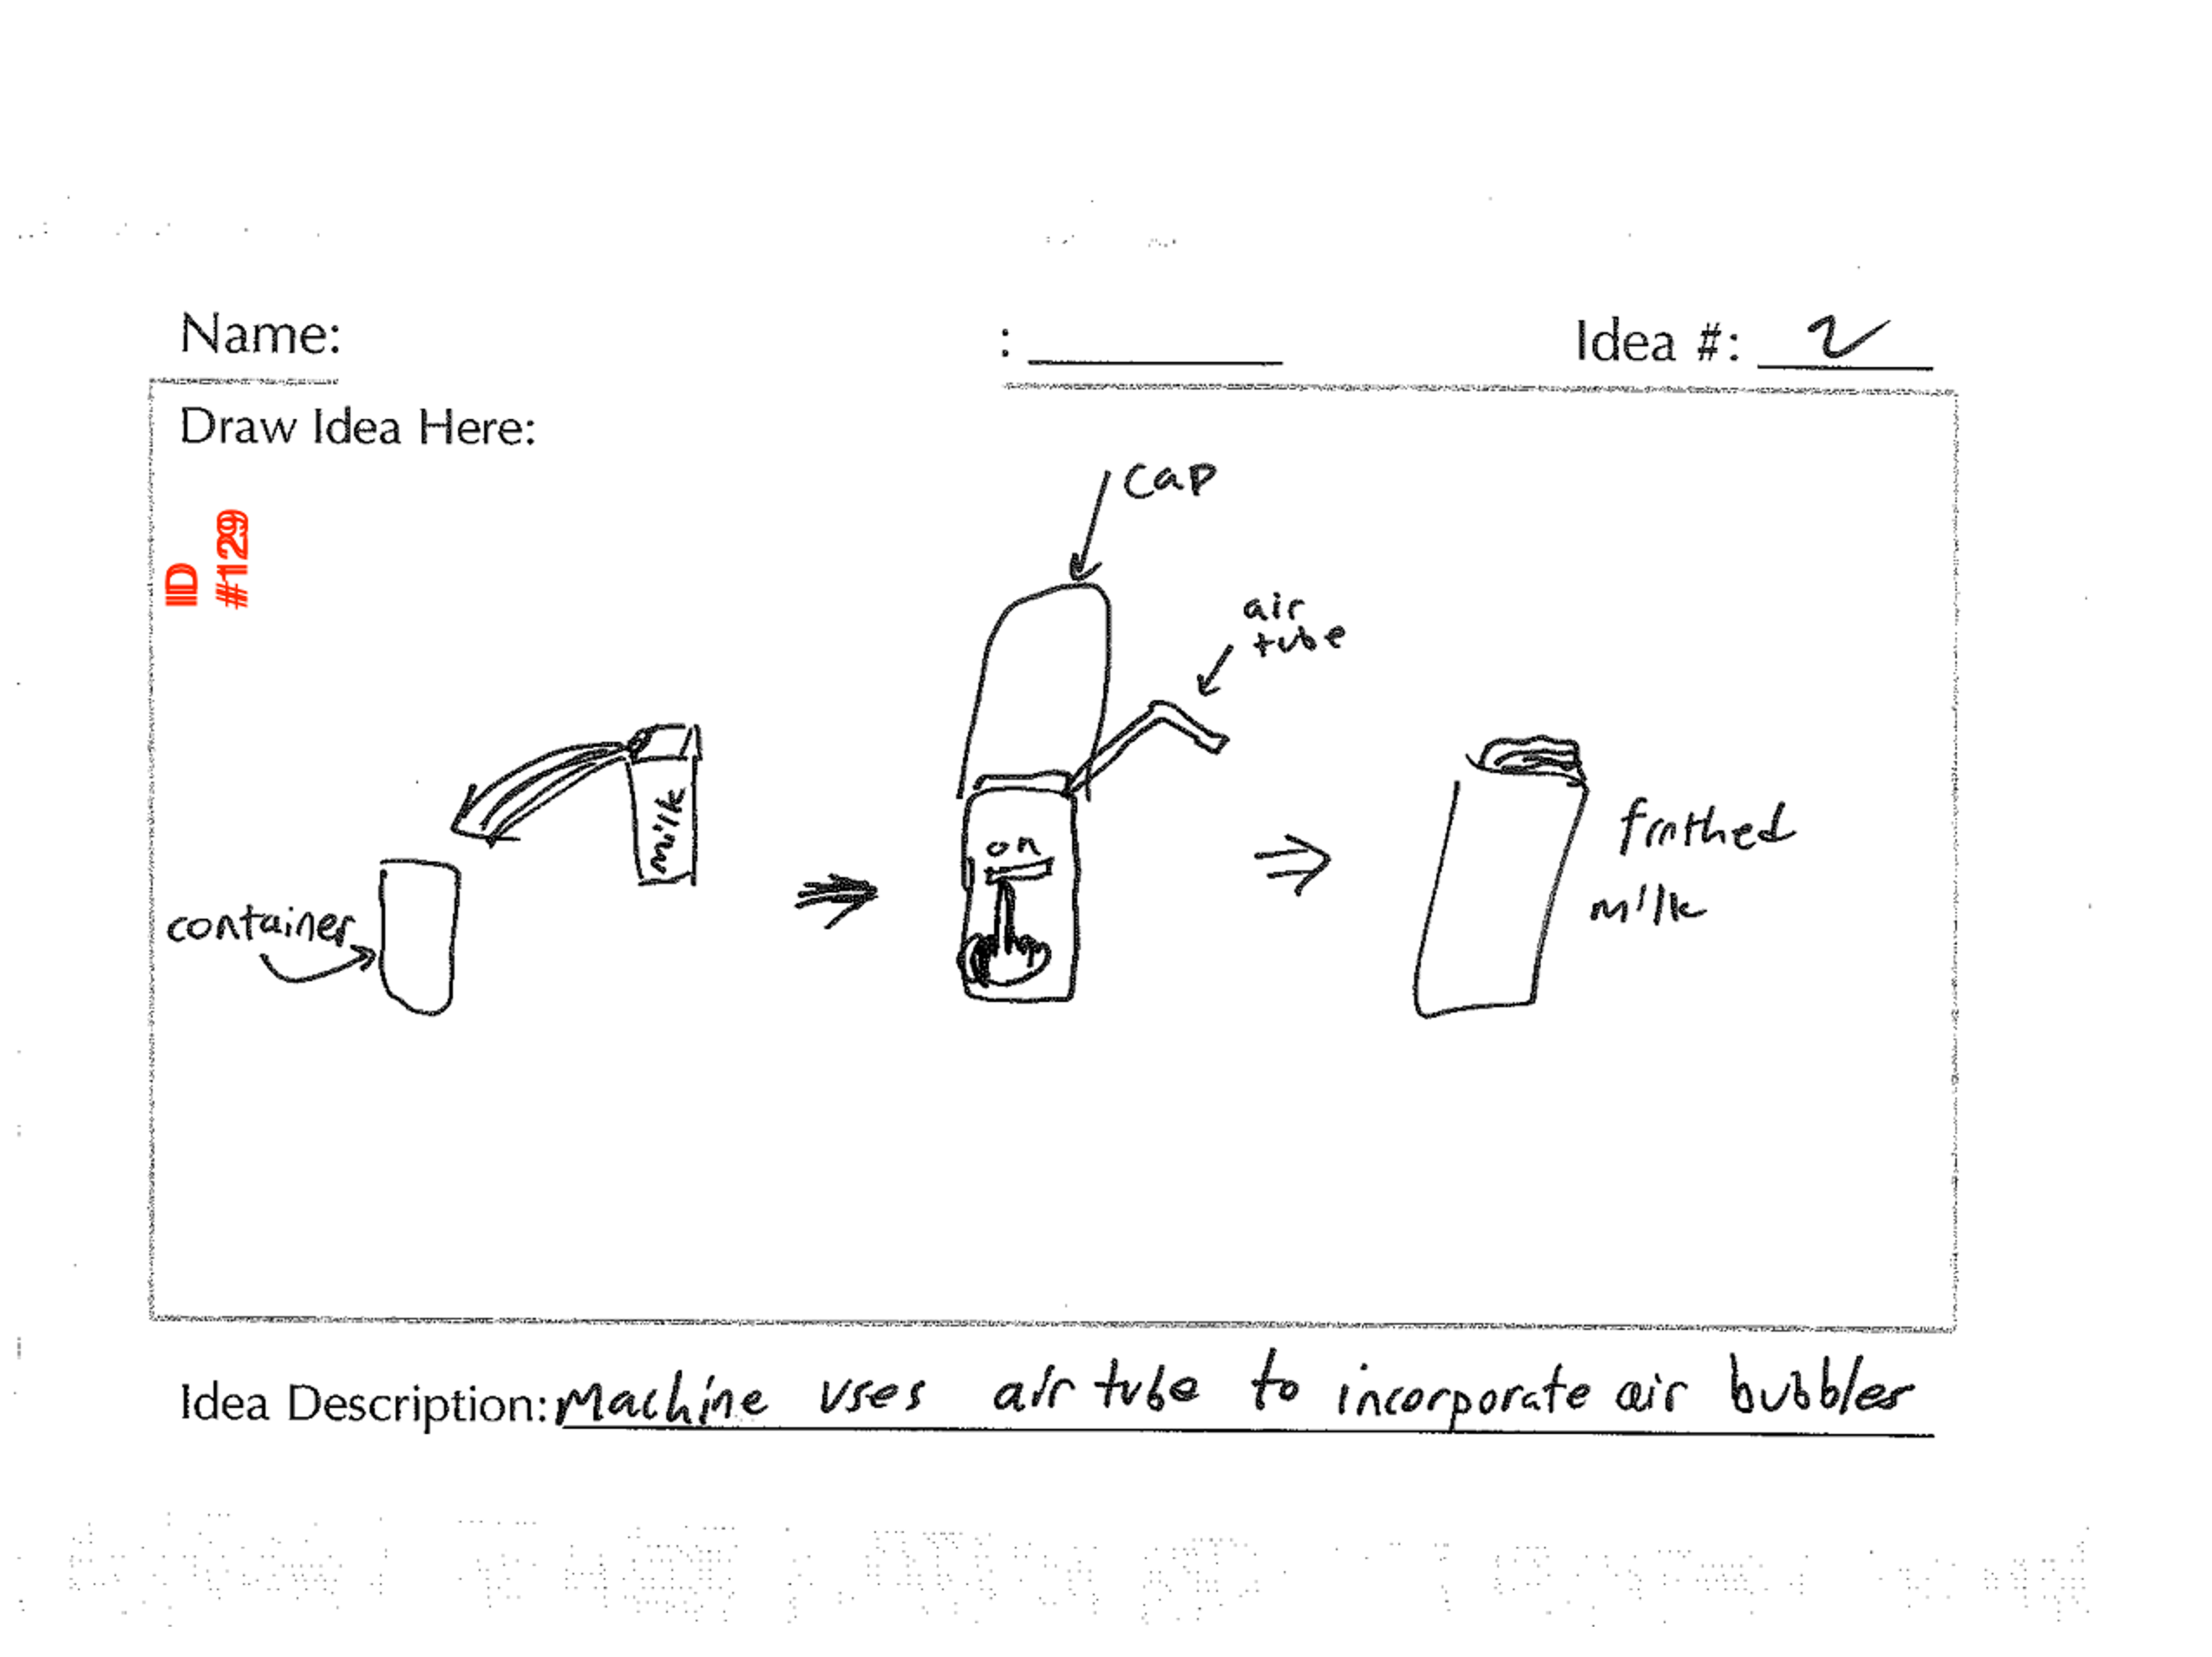 Name:
: Idea #: 2
Draw Idea Here:
ID
#129
cap
air
tube
milk
on
container
frothed
milk
Idea Description: Machine uses air tube to incorporate air bubbles